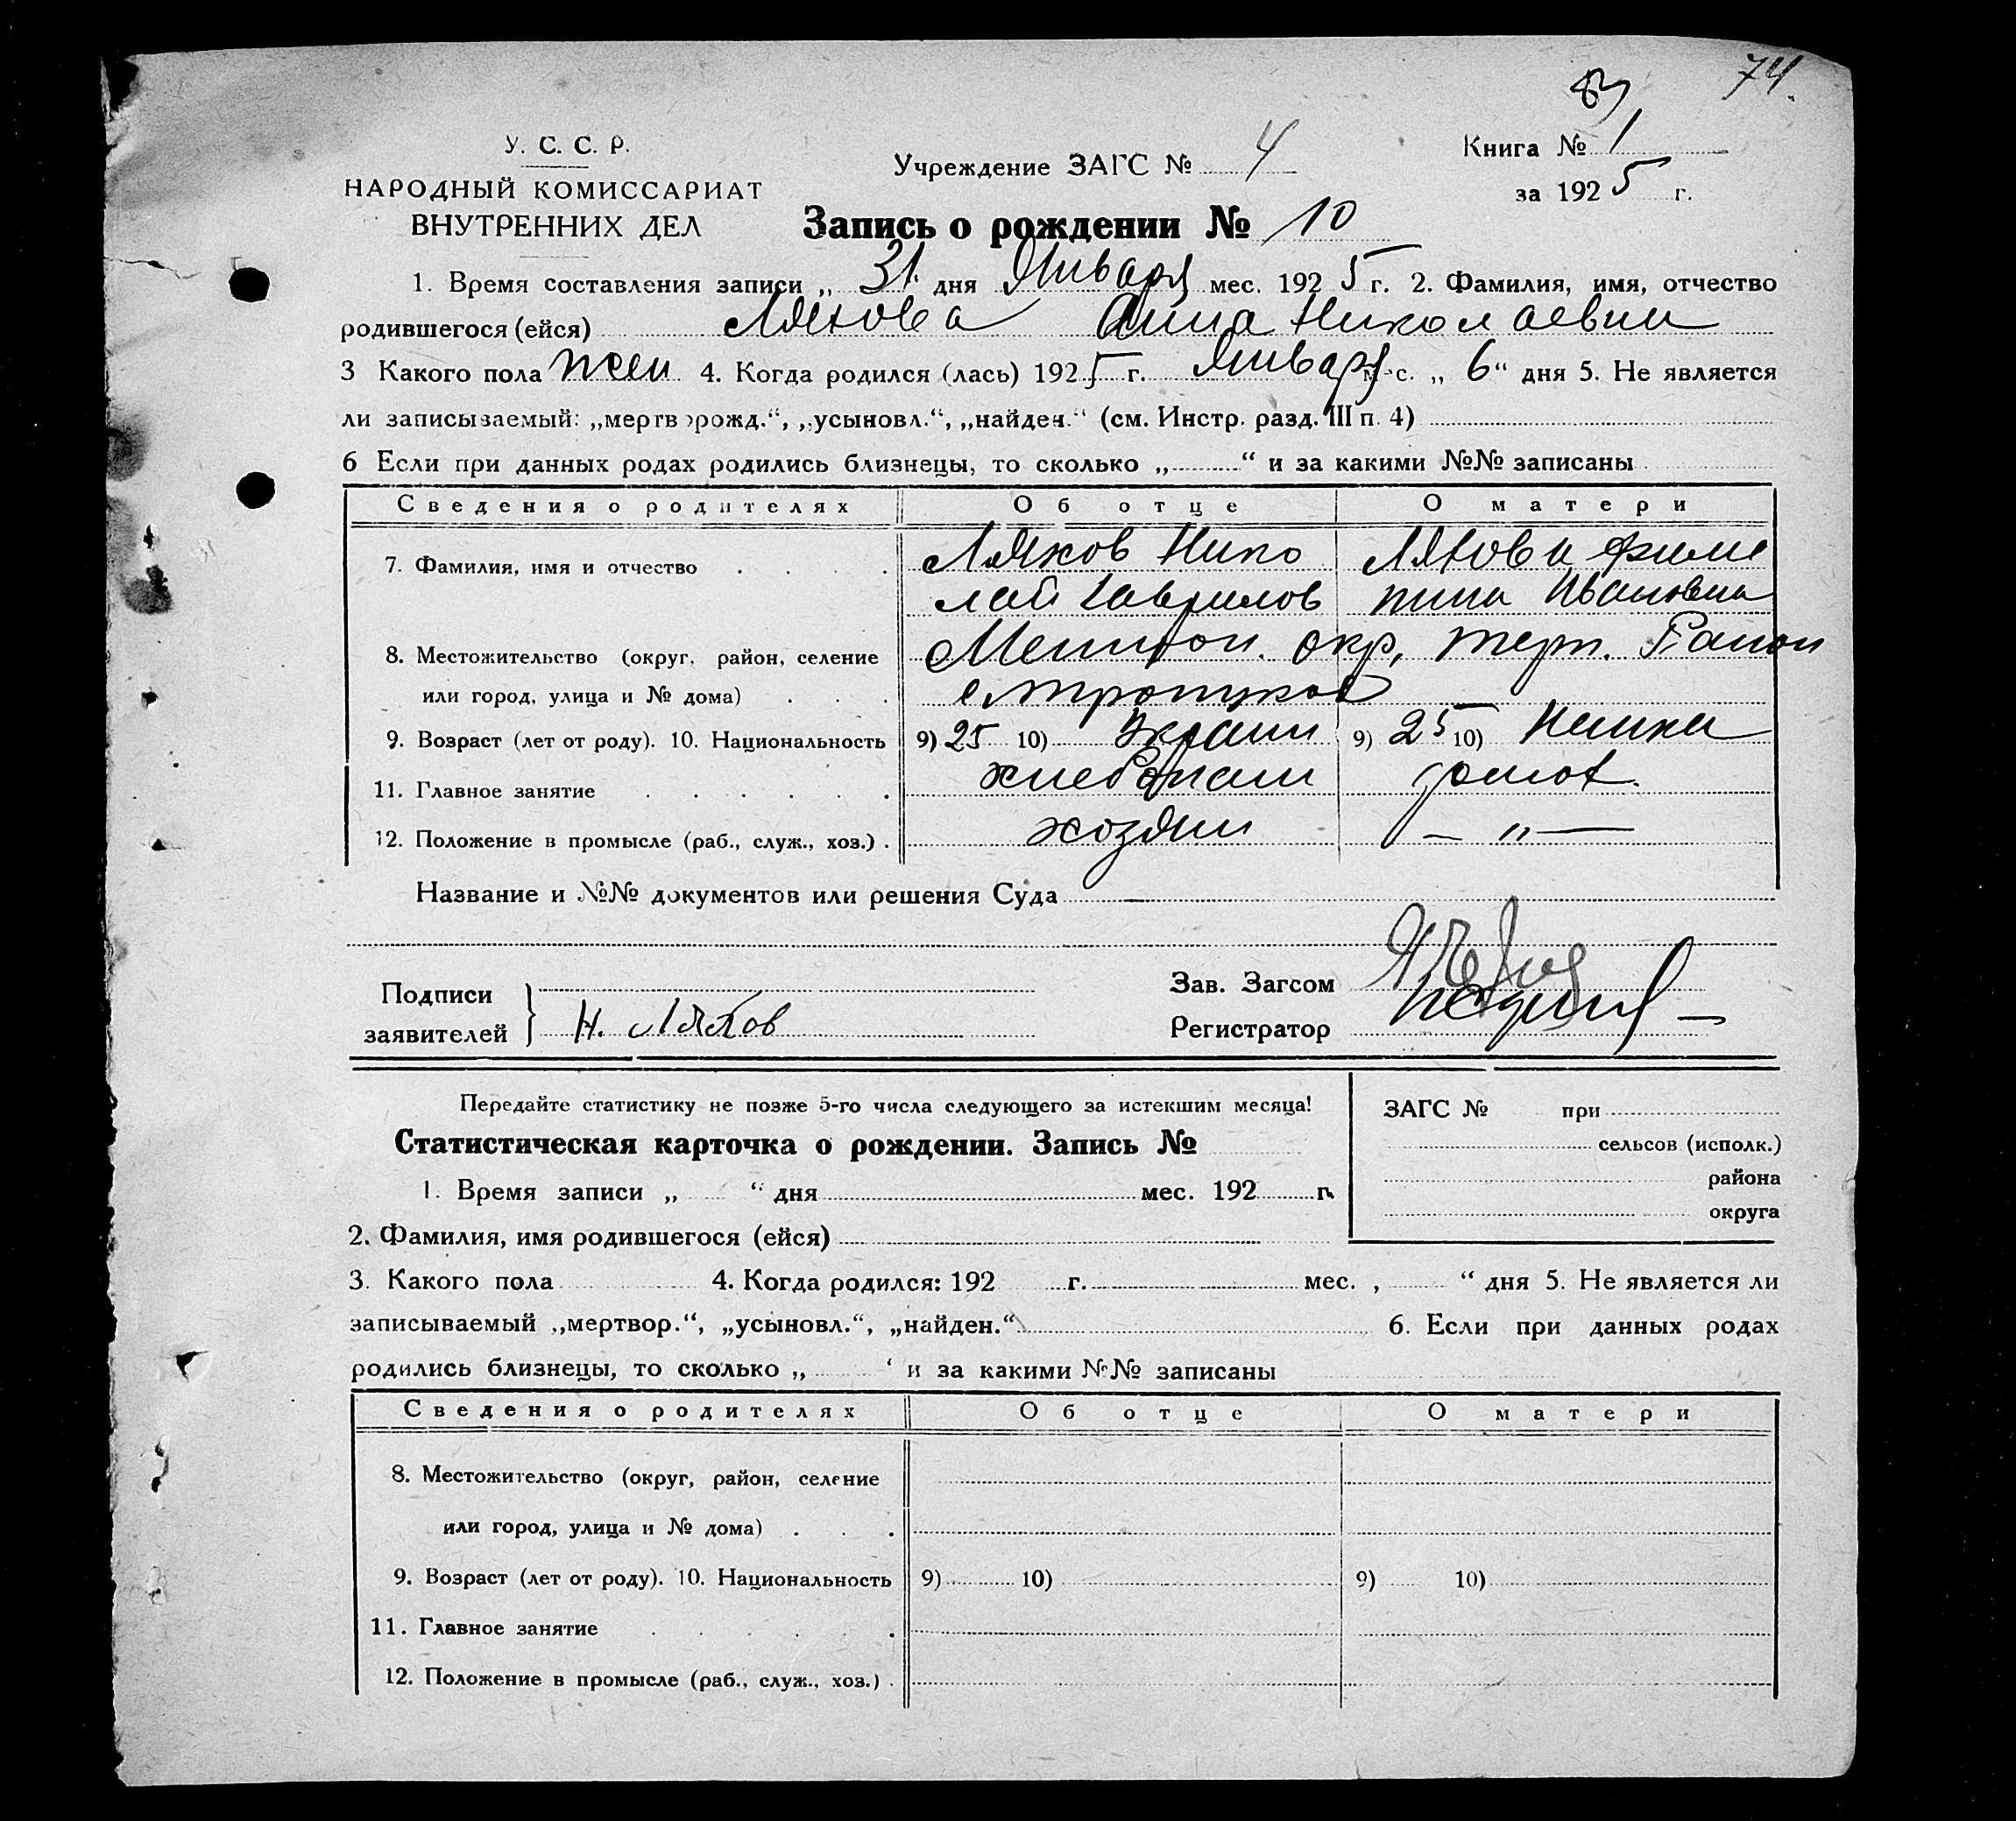 74.
83
У. С. С. Р.
Учреждение ЗАГС № 4
Книга № 1
НАРОДНЫЙ КОМИССАРИАТ
за 1925 г.
ВНУТРЕННИХ ДЕЛ
Запись о рождении № 10
1. Время составления записи „ 31 дня Января мес. 1925 г. 2. Фамилия, имя, отчество
родившегося (ейся) Ляхова Анна Николаевна
3 Какого пола жен 4. Когда родился (лась) 1925 г. Января мес. „ 6 “ дня 5. Не является
ли записываемый: „мертворожд.“, „усыновл.“, „найден.“ (см. Инстр. разд. III п. 4)
6 Если при данных родах родились близнецы, то сколько „ “ и за какими №№ записаны
Сведения о родителях Об отце О матери
7. Фамилия, имя и отчество Ляхов Нико Ляхова Фили
лай Гаврилов пина Ивановна
8. Местожительство (округ, район, селение Мелитоп. окр, терп. Район
или город, улица и № дома)
9. Возраст (лет от роду). 10. Национальность 9) 25 10) Украин 9) 25 10) Немка
11. Главное занятие хлебопаш домох.
12. Положение в промысле (раб., служ., хоз.) хозяин — „ —
Название и №№ документов или решения Суда
Подписи
заявителей
Н. Ляхов
Зав. Загсом
Регистратор
Передайте статистику не позже 5-го числа следующего за истекшим месяца!
ЗАГС № при
Статистическая карточка о рождении. Запись №
сельсов (исполк.)
района
1. Время записи „ “ дня мес. 192 г.
округа
2. Фамилия, имя родившегося (ейся)
3. Какого пола 4. Когда родился: 192 г. мес. , “ дня 5. Не является ли
записываемый „мертвор.“, „усыновл.“, „найден.“ 6. Если при данных родах
родились близнецы, то сколько „ ‘ и за какими №№ записаны
Сведения о родителях Об отце О матери
8. Местожительство (округ, район, селение
или город, улица и № дома)
9. Возраст (лет от роду). 10. Национальность 9) 10) 9) 10)
11. Главное занятие
12. Положение в промысле (раб., служ., хоз.)